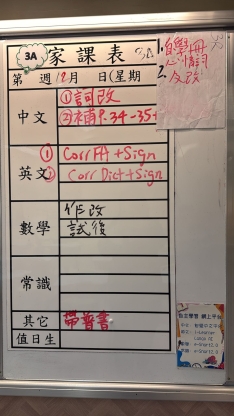 3A 家課表 3A
第 週 12月 日(星期
中文 ①詞改
②補P.34-35+
英文 ① Corr FA + Sign
② Corr Dict + Sign
數學 作改
試後
常識
其它 帶普書
值日生
1. 自學冊
2.
反改
自主學習 網上平台